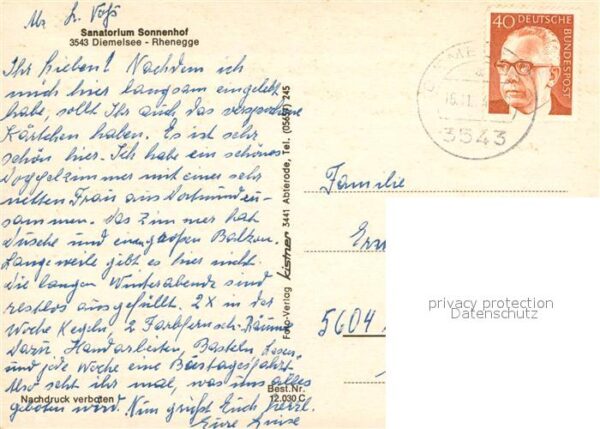 Abs. L. Voß
Sanatorium Sonnenhof
3543 Diemelsee - Rhenegge
Ihr Lieben! Nachdem ich
mich hier langsam eingelebt
habe, sollt Ihr auch das versprochene
Kärtchen haben. Es ist sehr
schön hier. Ich habe ein schönes
Doppelzimmer mit einer sehr
netten Frau aus Dortmund zu-
sammen. Das Zimmer hat
Dusche und einen großen Balkon.
Langeweile gibt es hier nicht
die langen Winterabende sind
restlos ausgefüllt. 2x in der
Woche Kegeln, 2 Farbfernseh-Räume
dazu, Handarbeiten, Basteln, Lesen
und jede Woche eine Bustagesfahrt.
Also seht ihr mal, was uns alles
geboten wird. Nun grüßt Euch herzl.
Eure Luise
Nachdruck verboten
Best.Nr.
12.030 C
Foto-Verlag kistner 3441 Abterode, Tel. (05657) 245
40 DEUTSCHE
BUNDESPOST
3543
Familie
5604
privacy protection
Datenschutz